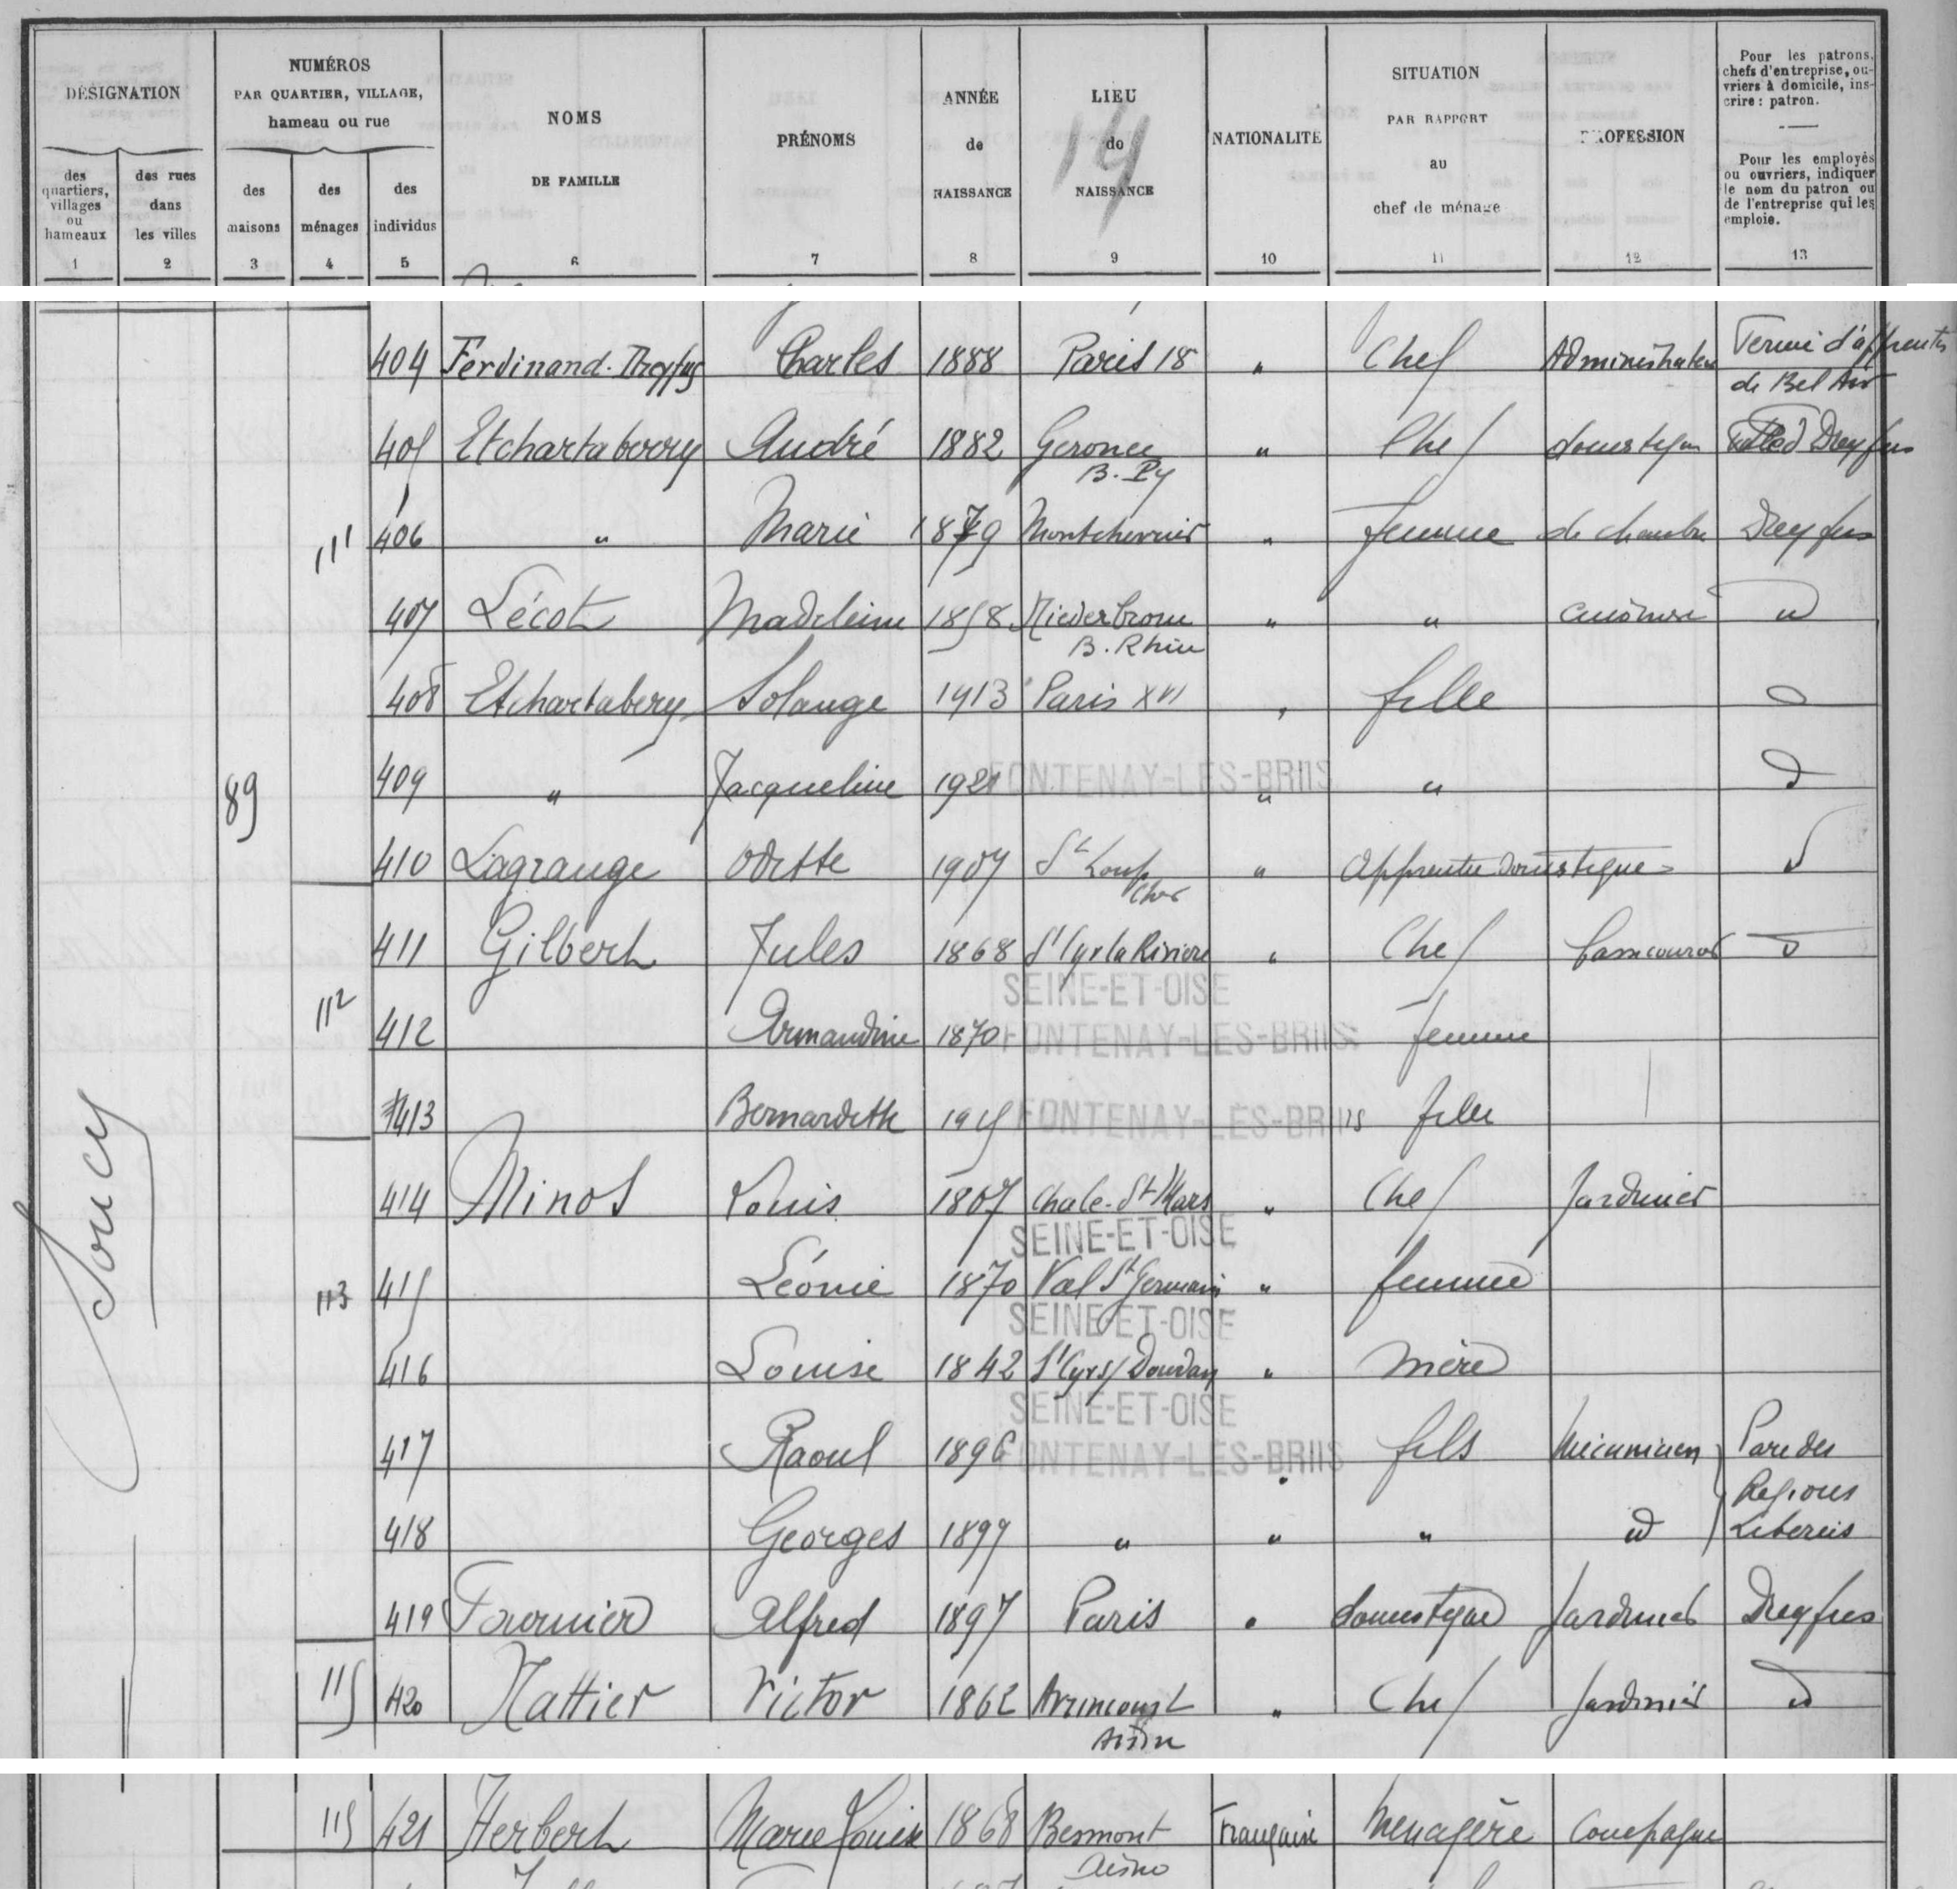 DÉSIGNATION
des quartiers, villages ou hameaux
des rues dans les villes
NUMÉROS
PAR QUARTIER, VILLAGE,
hameau ou rue
des maisons
des ménages
des individus
NOMS
DE FAMILLE
PRÉNOMS
ANNÉE
de
NAISSANCE
LIEU
de
NAISSANCE
14
NATIONALITÉ
SITUATION
PAR RAPPORT
au
chef de ménage
PROFESSION
Pour les patrons,
chefs d'entreprise, ou-
vriers à domicile, ins-
crire : patron.
Pour les employés
ou ouvriers, indiquer
le nom du patron ou
de l'entreprise qui les
emploie.
1 2 3 4 5 6 7 8 9 10 11 12 13
Soucy
89
404 Ferdinand-Dreyfus Charles 1888 Paris 18 " Chef Administrateur
de Bel Air
405 Etchartaboory André 1882 Geronce " Chef domestique Dreyfus
B. Py
111 406 " Marie 1879 " femme de chambre Dreyfus
407 Lécot Madeleine 1858 Niederbronn " " cuisinière d
B. Rhin
408 Etchartabery Solange 1913 Paris XVI " fille d
409 " Jacqueline 1921 FONTENAY-LES-BRIIS " " d
410 Lagrange Odette 1907 St Loup " Apprentie domestique d
Cher
411 Gilbert Jules 1868 St Cyr la Riviere " Chef d
SEINE-ET-OISE
112 412 Armandine 1870 FONTENAY-LES-BRIIS femme
413 Bernardette 1915 FONTENAY-LES-BRIIS fille
414 Minos Louis 1867 Chalo-St-Mars " Chef Jardinier
SEINE-ET-OISE
113 415 Léonie 1870 Val St Germain " femme
SEINE-ET-OISE
416 Louise 1842 St Cyr s/ Dourdan " mère
SEINE-ET-OISE
417 Raoul 1896 FONTENAY-LES-BRIIS " fils Mécanicien Parc des
Régions
418 Georges 1897 " " " d Liberées
419 Fournier Alfred 1897 Paris " domestique Jardinier Dreyfus
115 420 Nattier Victor 1862 " Chef Jardinier d
Aisne
115 421 Herbert Marie Louise 1868 Besmont Française Menagère Compagne
Aisne